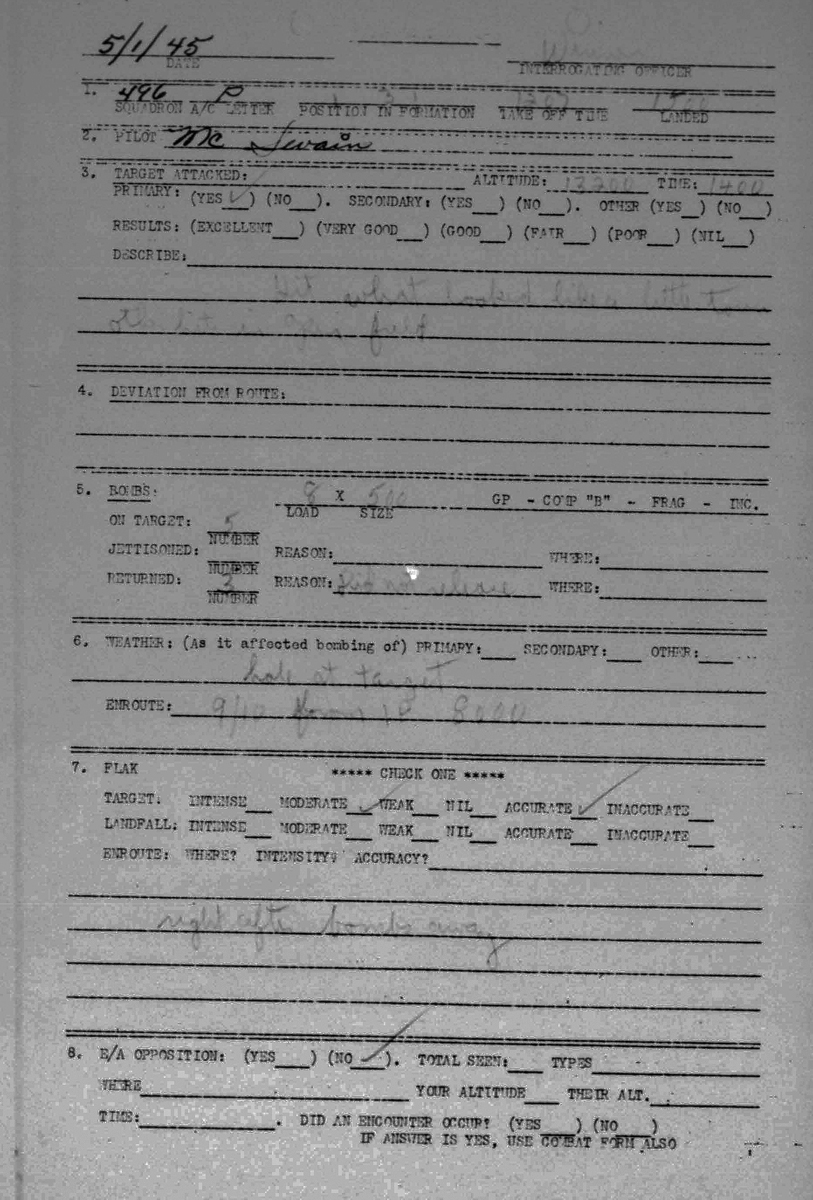 5/1/45
DATE
INTERROGATING OFFICER
1. 496 P
SQUADRON A/C LETTER POSITION IN FORMATION TAKE OFF TIME LANDED
2. PILOT Mc Swain
3. TARGET ATTACKED: ALTITUDE: 13200 TIME: 1400
PRIMARY: (YES ✓) (NO__). SECONDARY: (YES__) (NO__). OTHER (YES__) (NO__)
RESULTS: (EXCELLENT__) (VERY GOOD__) (GOOD__) (FAIR__) (POOR__) (NIL__)
DESCRIBE:
Hit what looked like a little town
oth hit in field
4. DEVIATION FROM ROUTE:
5. BOMBS: 8 X 500 GP - COMP "B" - FRAG - INC.
LOAD SIZE
ON TARGET: 5
NUMBER
JETTISONED: REASON: WHERE:
NUMBER
RETURNED: 3 REASON: Did not release WHERE:
NUMBER
6. WEATHER: (As it affected bombing of) PRIMARY:__ SECONDARY:__ OTHER:__
hole at target
ENROUTE: 9/10 from 8000
7. FLAK ***** CHECK ONE *****
TARGET: INTENSE__ MODERATE ✓ WEAK__ NIL__ ACCURATE ✓ INACCURATE__
LANDFALL: INTENSE__ MODERATE__ WEAK__ NIL__ ACCURATE__ INACCURATE__
ENROUTE: WHERE? INTENSITY? ACCURACY?
right after bombs away
8. E/A OPPOSITION: (YES__) (NO ✓). TOTAL SEEN:__ TYPES
WHERE YOUR ALTITUDE THEIR ALT.
TIME: . DID AN ENCOUNTER OCCUR? (YES__) (NO__)
IF ANSWER IS YES, USE COMBAT FORM ALSO